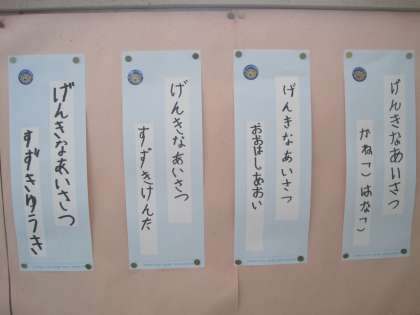 げんきなあいさつ
かねこはなこ
げんきなあいさつ
おおはしあおい
げんきなあいさつ
すずきけんた
げんきなあいさつ
すずきゆうき